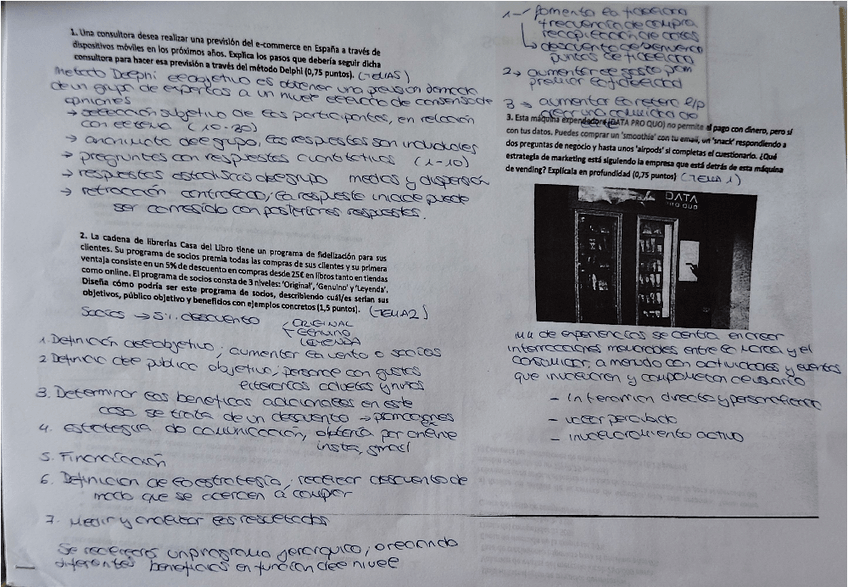 1. Una consultora desea realizar una previsión del e-commerce en España a través de
dispositivos móviles en los próximos años. Explica los pasos que debería seguir dicha
consultora para hacer esa previsión a través del método Delphi (0,75 puntos). (TEMA5)
Metodo Delphi el objetivo es obtener una
de un grupo de expertos a un nivel elevado de consenso de
opiniones
→ selección subjetivo de los participantes, en relación
con el tema (10-30)
→ anonimato del grupo, las respuestas son individuales
→ preguntas con respuestas cuantitativas (1-10)
→ respuestas estadística del grupo medias y dispersión
→ retroacción controlada, la respuesta inicial puede
ser corregida con posteriores respuestas.
2. La cadena de librerías Casa del Libro tiene un programa de fidelización para sus
clientes. Su programa de socios premia todas las compras de sus clientes y su primera
ventaja consiste en un 5% de descuento en compras desde 25€ en libros tanto en tiendas
como online. El programa de socios consta de 3 niveles: 'Original', 'Genuino' y 'Leyenda'.
Diseña cómo podría ser este programa de socios, describiendo cuál/es serían sus
objetivos, público objetivo y beneficios con ejemplos concretos (1,5 puntos). (TEMA2)
SOCIOS → 5% descuento
ORIGINAL
GENUINO
LEYENDA
1 Definición del objetivo; aumentar la venta o socios
2 Definición del publico objetivo, persona con gustos
literarios adultos y niños
3. Determinar los beneficios adicionales en este
caso se trata de un descuento → promociones
4. estrategia de comunicación, obtenía por online
insta, gmail
5. Financiación
6. Definicion de la estrategia, recibir descuentos de
modo que se acercen a comprar
7. Medir y analizar los resultados
Se realizará un programa jerarquico, creando
diferentes beneficios en función del nivel
1. fomento la fidelidad
frecuencia de compra
recopilación de datos
↳ descuento de bienvenida
puntos de fidelidad
2 → aumentar el gasto prom
premiar la fidelidad
3 → aumentar la reten l/p
crear una comunidad de
3. Esta máquina expendedora (DATA PRO QUO) no permite el pago con dinero, pero sí
con tus datos. Puedes comprar un 'smoothie' con tu email, un 'snack' respondiendo a
dos preguntas de negocio y hasta unos 'airpods' si completas el cuestionario. ¿Qué
estrategia de marketing está siguiendo la empresa que está detrás de esta máquina
de vending? Explícala en profundidad (0,75 puntos) (TEMA 1)
DATA
PRO QUO
de experiencias se centra en crear
interacciones memorables entre la marca y el
consumidor, a menudo con actividades y eventos
que involucran y comprometen el usuario
- Interacción directa y personalizada
- valor percibido
- involucramiento activo